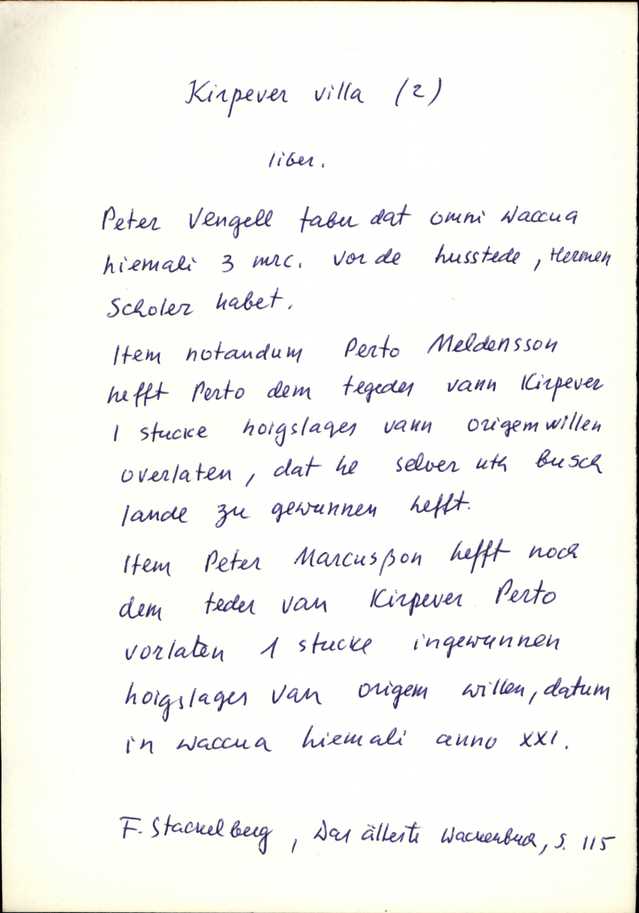 Kirpever villa (2)
liber.
Peter Vengell tabu dat omni waccua
hiemali 3 mrc. vor de husstede, Hermen
Scholer habet.
Item notandum Perto Meldensson
hefft Perto dem tegeder vann Kirpever
1 stucke hoigslages vann origem willen
overlaten, dat he selver uth busch
lande zu gewunnen hefft.
Item Peter Marcusßon hefft noch
dem teder van Kirpever Perto
vorlaten 1 stucke ingewunnen
hoigslages van origem willen, datum
in waccua hiemali anno XXI.
F. Stackelberg, Das älteste Wackenbuch, S. 115